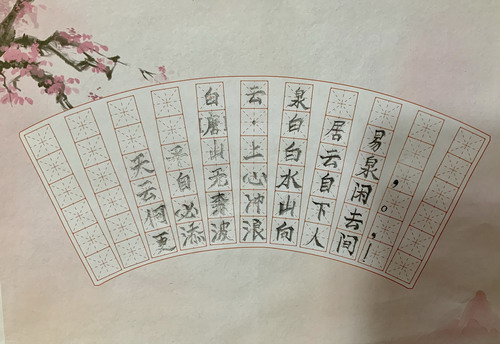 白云泉
唐·白居易
天平山上白云泉，
云自无心水自闲。
何必奔冲山下去，
更添波浪向人间！